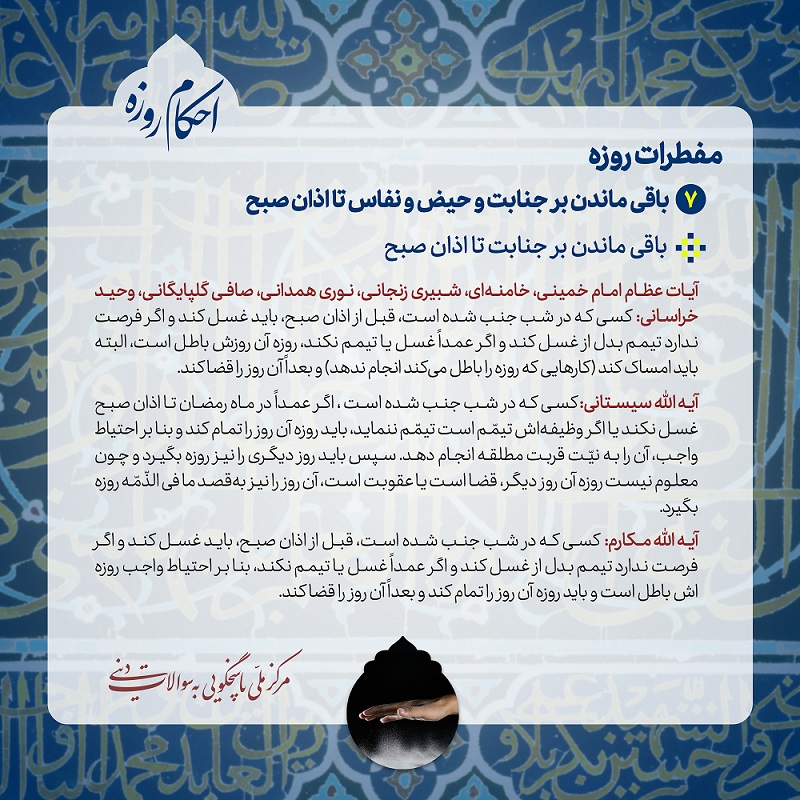 احکام روزه
مفطرات روزه
۷ باقی ماندن بر جنابت و حیض و نفاس تا اذان صبح
باقی ماندن بر جنابت تا اذان صبح
آیات عظام امام خمینی، خامنه‌ای، شبیری زنجانی، نوری همدانی، صافی گلپایگانی، وحید
خراسانی: کسی که در شب جنب شده است، قبل از اذان صبح، باید غسل کند و اگر فرصت
ندارد تیمم بدل از غسل کند و اگر عمداً غسل یا تیمم نکند، روزه آن روزش باطل است، البته
باید امساک کند (کارهایی که روزه را باطل می‌کند انجام ندهد) و بعداً آن روز را قضا کند.
آیه الله سیستانی: کسی که در شب جنب شده است ، اگر عمداً در ماه رمضان تا اذان صبح
غسل نکند یا اگر وظیفه‌اش تیمّم است تیمّم ننماید، باید روزه آن روز را تمام کند و بنابر احتیاط
واجب، آن را به نیّت قربت مطلقه انجام دهد. سپس باید روز دیگری را نیز روزه بگیرد و چون
معلوم نیست روزه آن روز دیگر، قضا است یا عقوبت است، آن روز را نیز به‌قصد مافی الذّمّه روزه
بگیرد.
آیه الله مکارم: کسی که در شب جنب شده است، قبل از اذان صبح، باید غسل کند و اگر
فرصت ندارد تیمم بدل از غسل کند و اگر عمداً غسل یا تیمم نکند، بنا بر احتیاط واجب روزه
اش باطل است و باید روزه آن روز را تمام کند و بعداً آن روز را قضا کند.
مرکز ملّی پاسخگویی به سوالات دینی